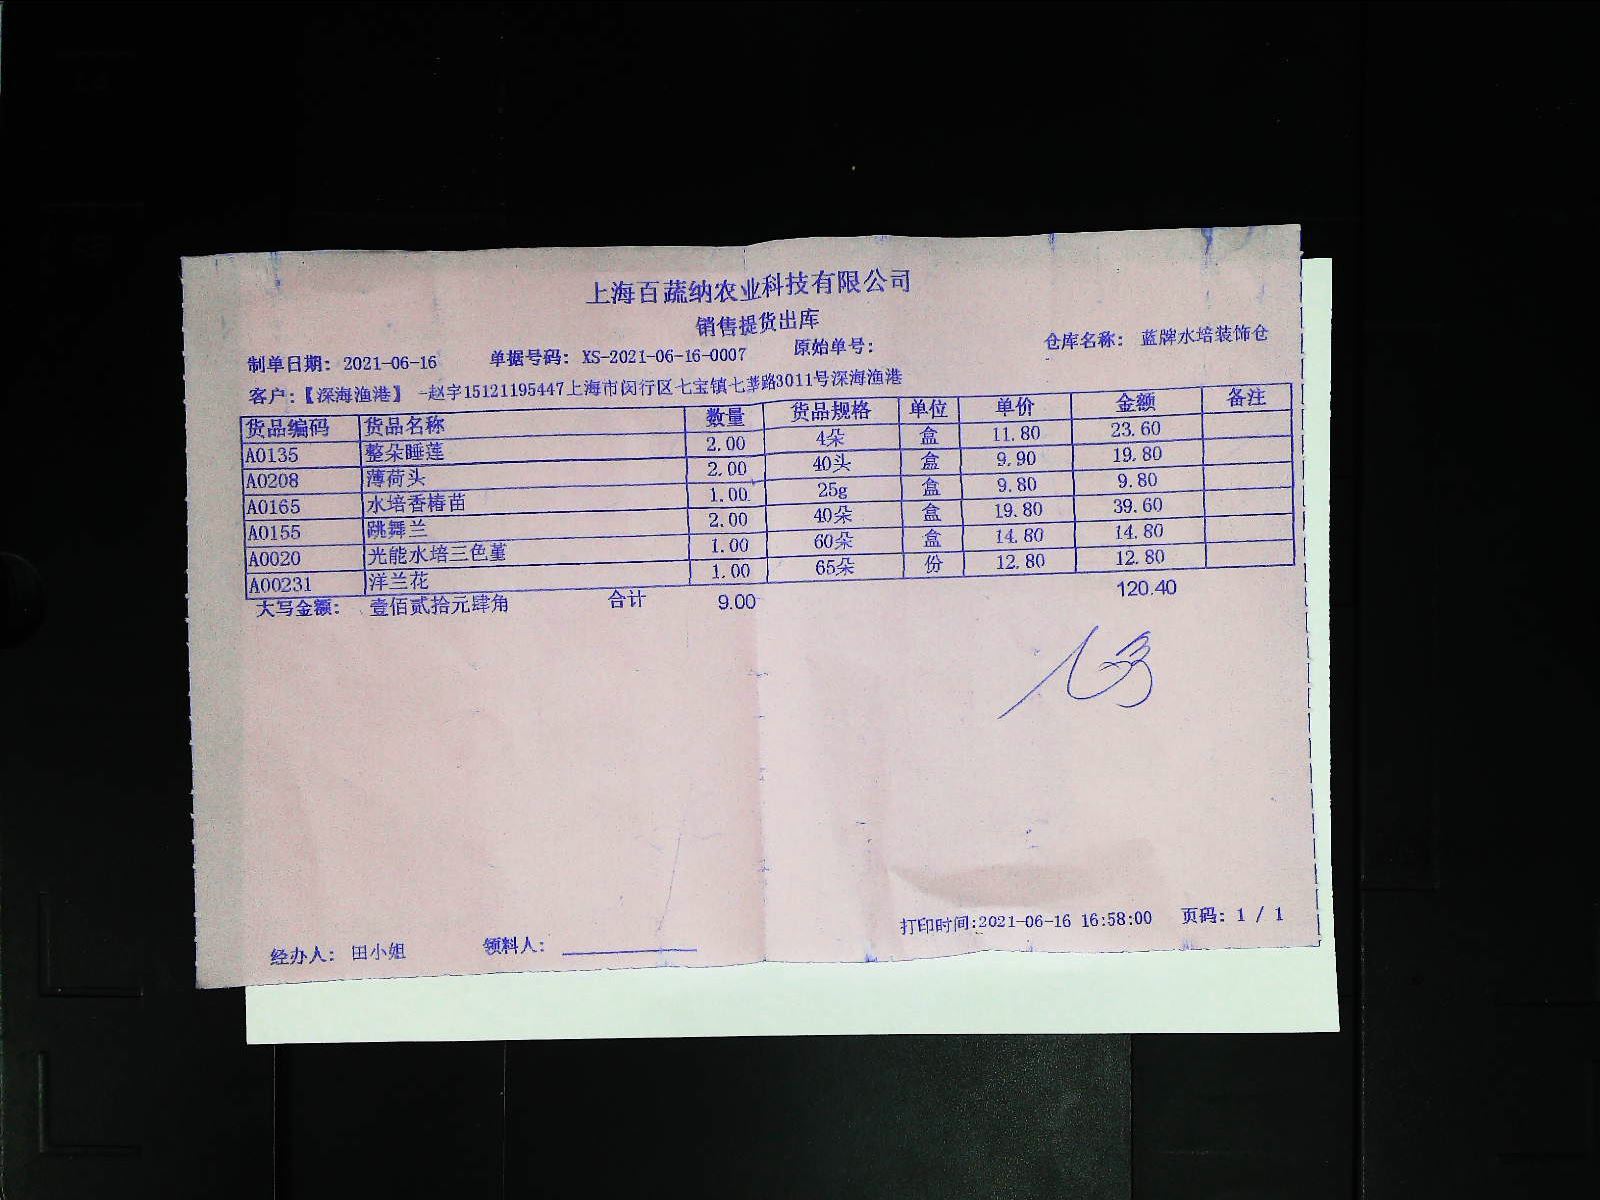 上海百蔬纳农业科技有限公司
销售提货出库
制单日期: 2021-06-16 单据号码: XS-2021-06-16-0007 原始单号: 仓库名称: 蓝牌水培装饰仓
客户:【深海渔港】 -赵宇15121195447上海市闵行区七宝镇七莘路3011号深海渔港
货品编码 货品名称 数量 货品规格 单位 单价 金额 备注
A0135 整朵睡莲 2.00 4朵 盒 11.80 23.60
A0208 薄荷头 2.00 40头 盒 9.90 19.80
A0165 水培香椿苗 1.00 25g 盒 9.80 9.80
A0155 跳舞兰 2.00 40朵 盒 19.80 39.60
A0020 光能水培三色堇 1.00 60朵 盒 14.80 14.80
A00231 洋兰花 1.00 65朵 份 12.80 12.80
大写金额: 壹佰贰拾元肆角 合计 9.00 120.40
打印时间:2021-06-16 16:58:00 页码: 1 / 1
经办人: 田小姐 领料人: